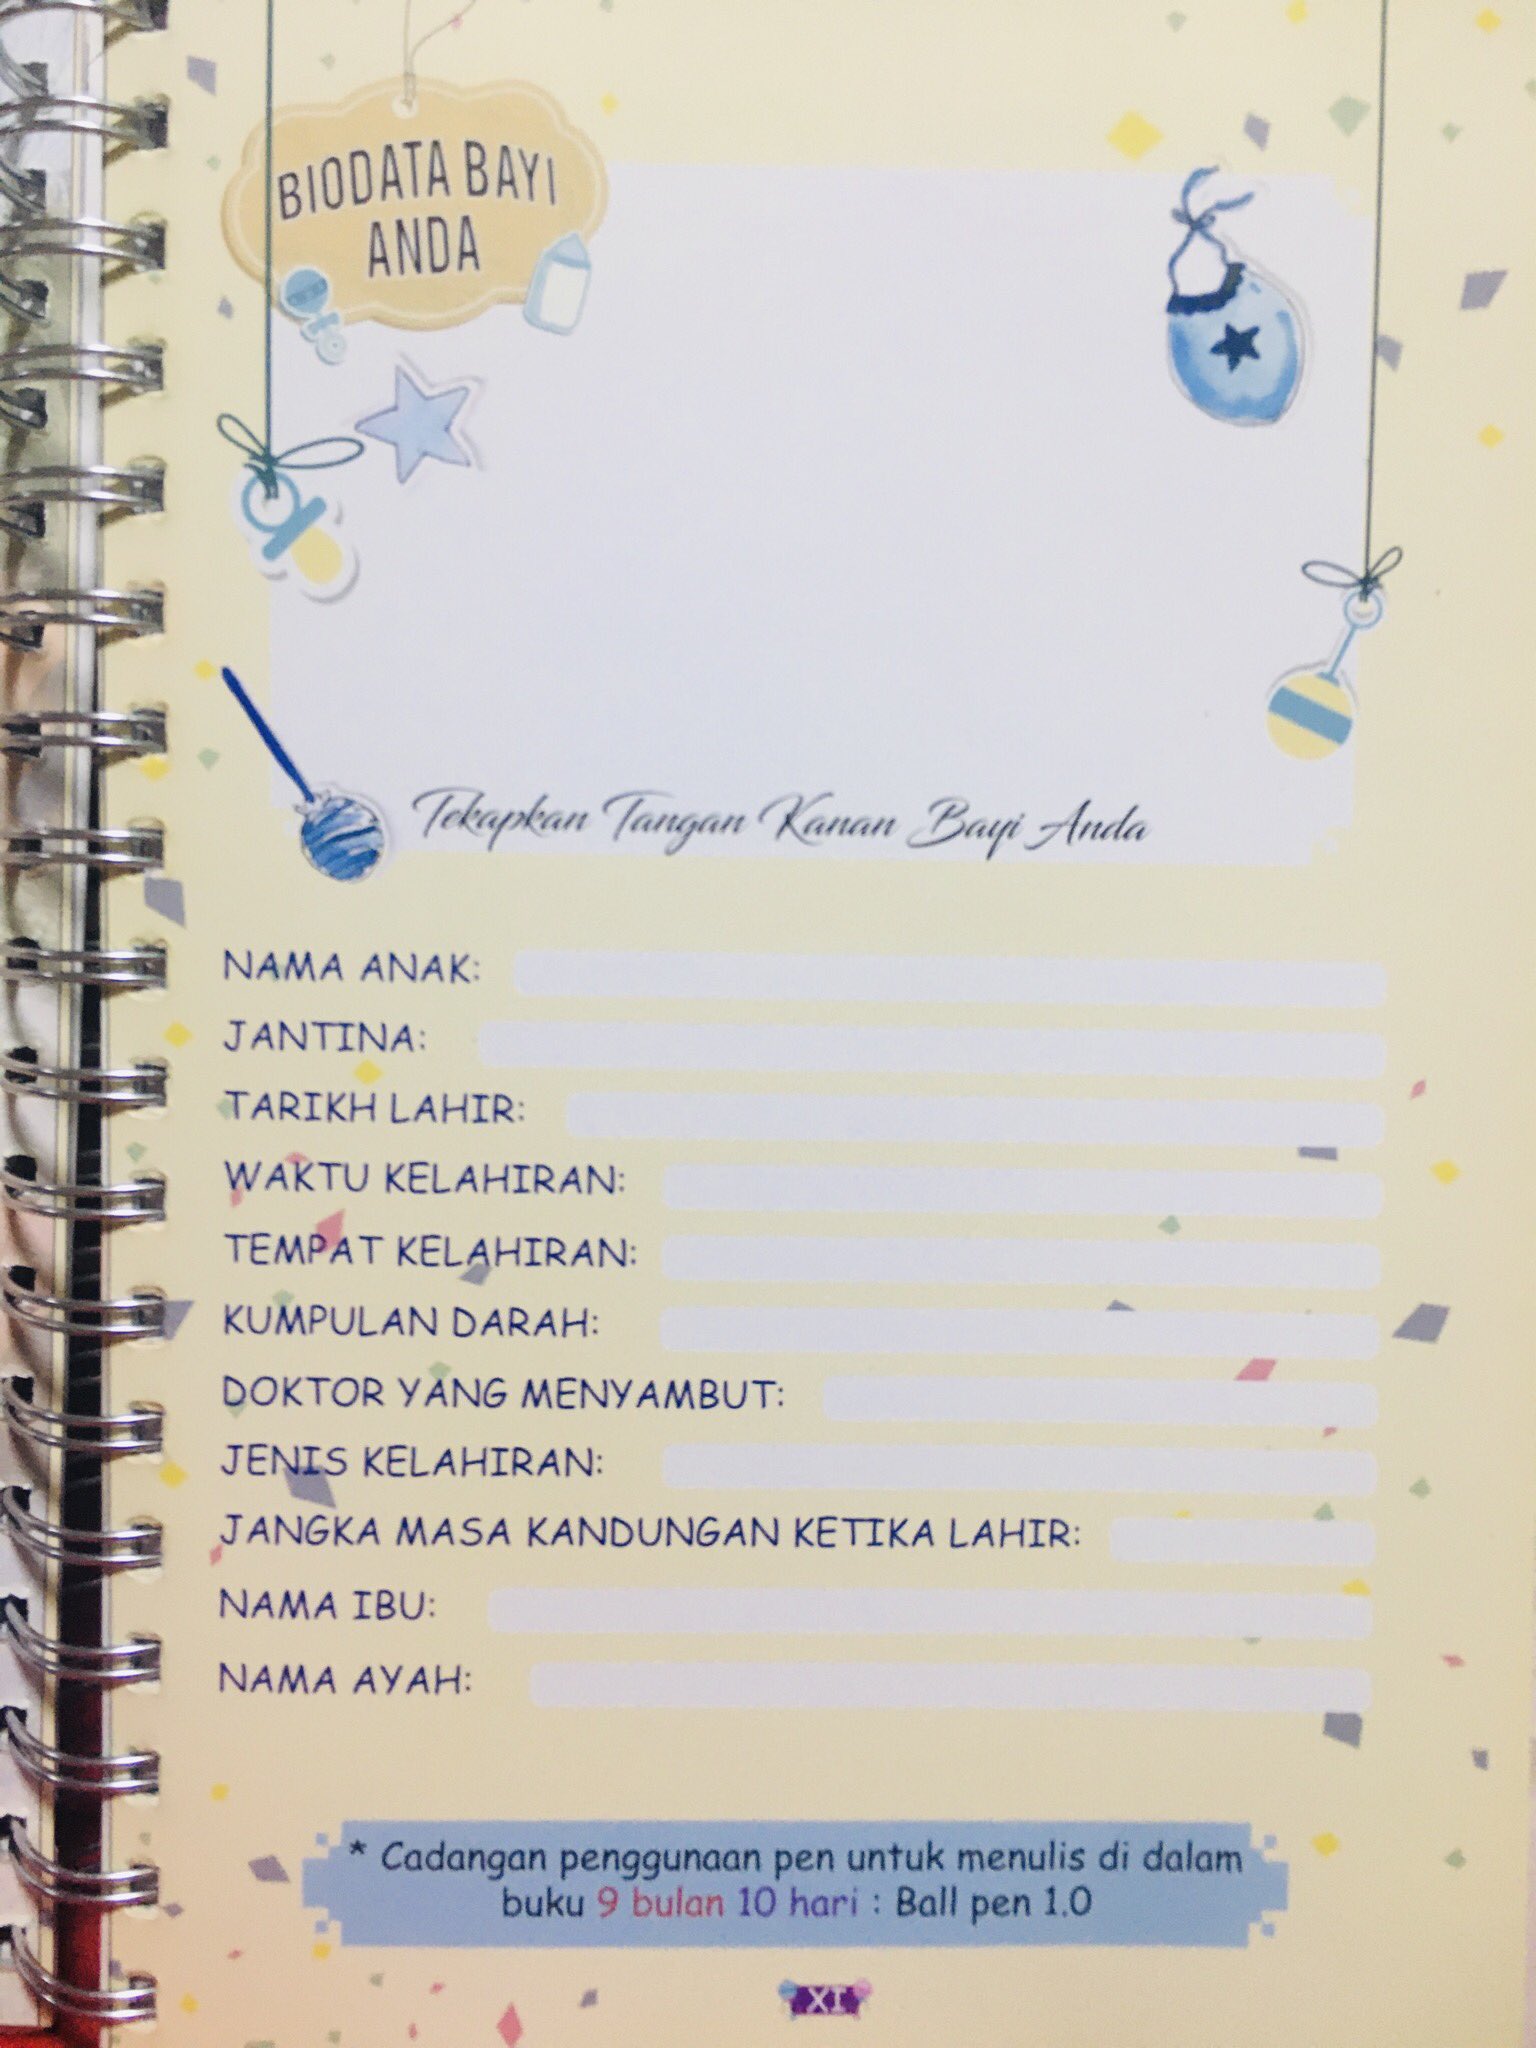 BIODATA BAYI
ANDA
Tekapkan Tangan Kanan Bayi Anda
NAMA ANAK:
JANTINA:
TARIKH LAHIR:
WAKTU KELAHIRAN:
TEMPAT KELAHIRAN:
KUMPULAN DARAH:
DOKTOR YANG MENYAMBUT:
JENIS KELAHIRAN:
JANGKA MASA KANDUNGAN KETIKA LAHIR:
NAMA IBU:
NAMA AYAH:
* Cadangan penggunaan pen untuk menulis di dalam
buku 9 bulan 10 hari : Ball pen 1.0
XI